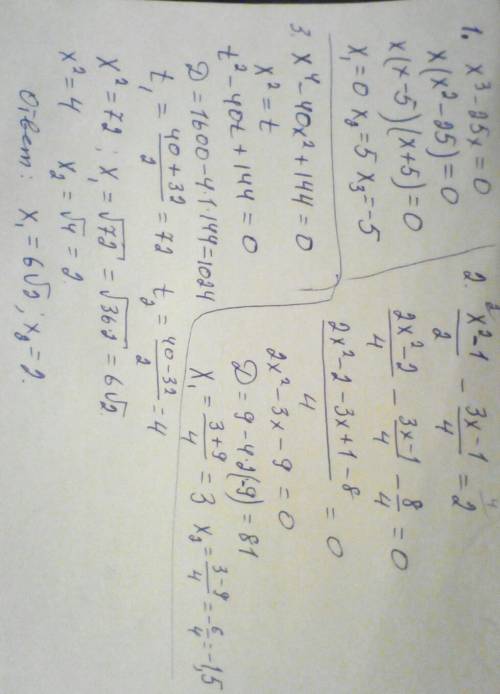 1. x³-25x=0
x(x²-25)=0
x(x-5)(x+5)=0
x₁=0 x₂=5 x₃=-5
2. (x²-1)/2 - (3x-1)/4 = 2
(2x²-2)/4 - (3x-1)/4 - 8/4 = 0
(2x²-2-3x+1-8)/4 = 0
2x²-3x-9=0
D=9-4·2(-9)=81
x₁=(3+9)/4=3 x₂=(3-9)/4=-6/4=-1,5
3. x⁴-40x²+144=0
x²=t
t²-40t+144=0
D=1600-4·1·144=1024
t₁=(40+32)/2=72 t₂=(40-32)/2=4
x²=72; x₁=√72=√36·2=6√2.
x²=4 x₂=√4=2.
Ответ: x₁=6√2; x₂=2.